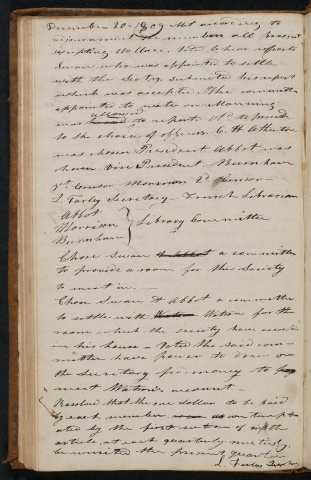 December 20th 1809 Met according to
adjournment members all present
excepting Wallace. Voted to hear reports
Swan who was appointed to settle
with the Secty submitted his report
which was accepted. The committee
appointed to wait on Morning
was allowed to report. Vd. to proceed
to the choice of officers. C. H. Atherton
was chosen President Abbot was
chosen Vice President. Burnham
1st. Censor Morrison 2d. Censor
L. Farley Secretary French Librarian
Abbot
Morrison } Library Committee
Burnham
Chose Swan & Abbot a committee
to provide a room for the Society
to meet in. —
Chose Swan & Abbot a committee
to settle with Watson for the
room which the society have occupied
in his house — Voted the said com-
mittee have power to draw on
the Secretary for money to
meet Watson's account. —
Resolved that the one dollar to be paid
by each member
by the first section of
article, at each quarterly meeting,
be remitted the present quarter
L. Farley Secy